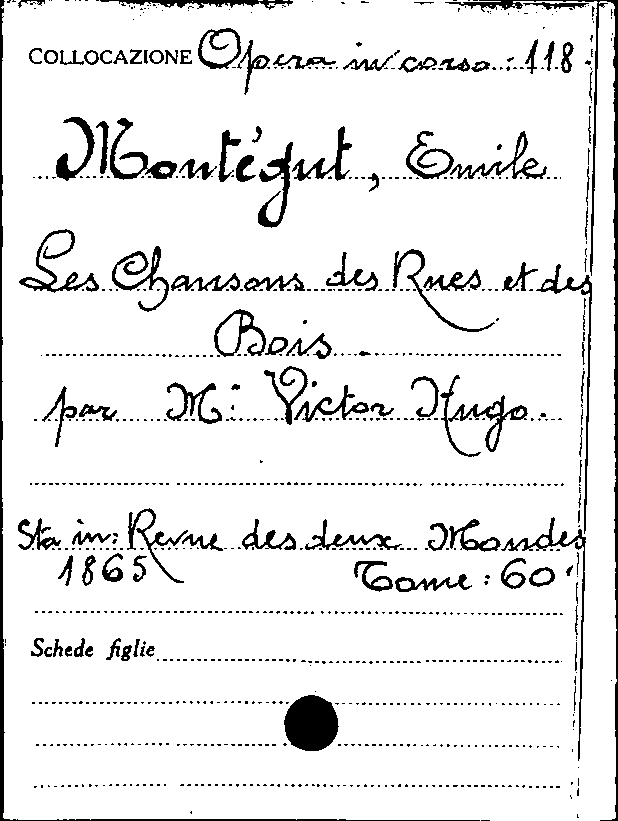 COLLOCAZIONE Opera in corso : 118.
Montégut, Emile
Les Chansons des Rues et des
Bois.
par M.: Victor Hugo.
Sta in: Revue des deux Mondes
1865 Tome : 60'
Schede figlie